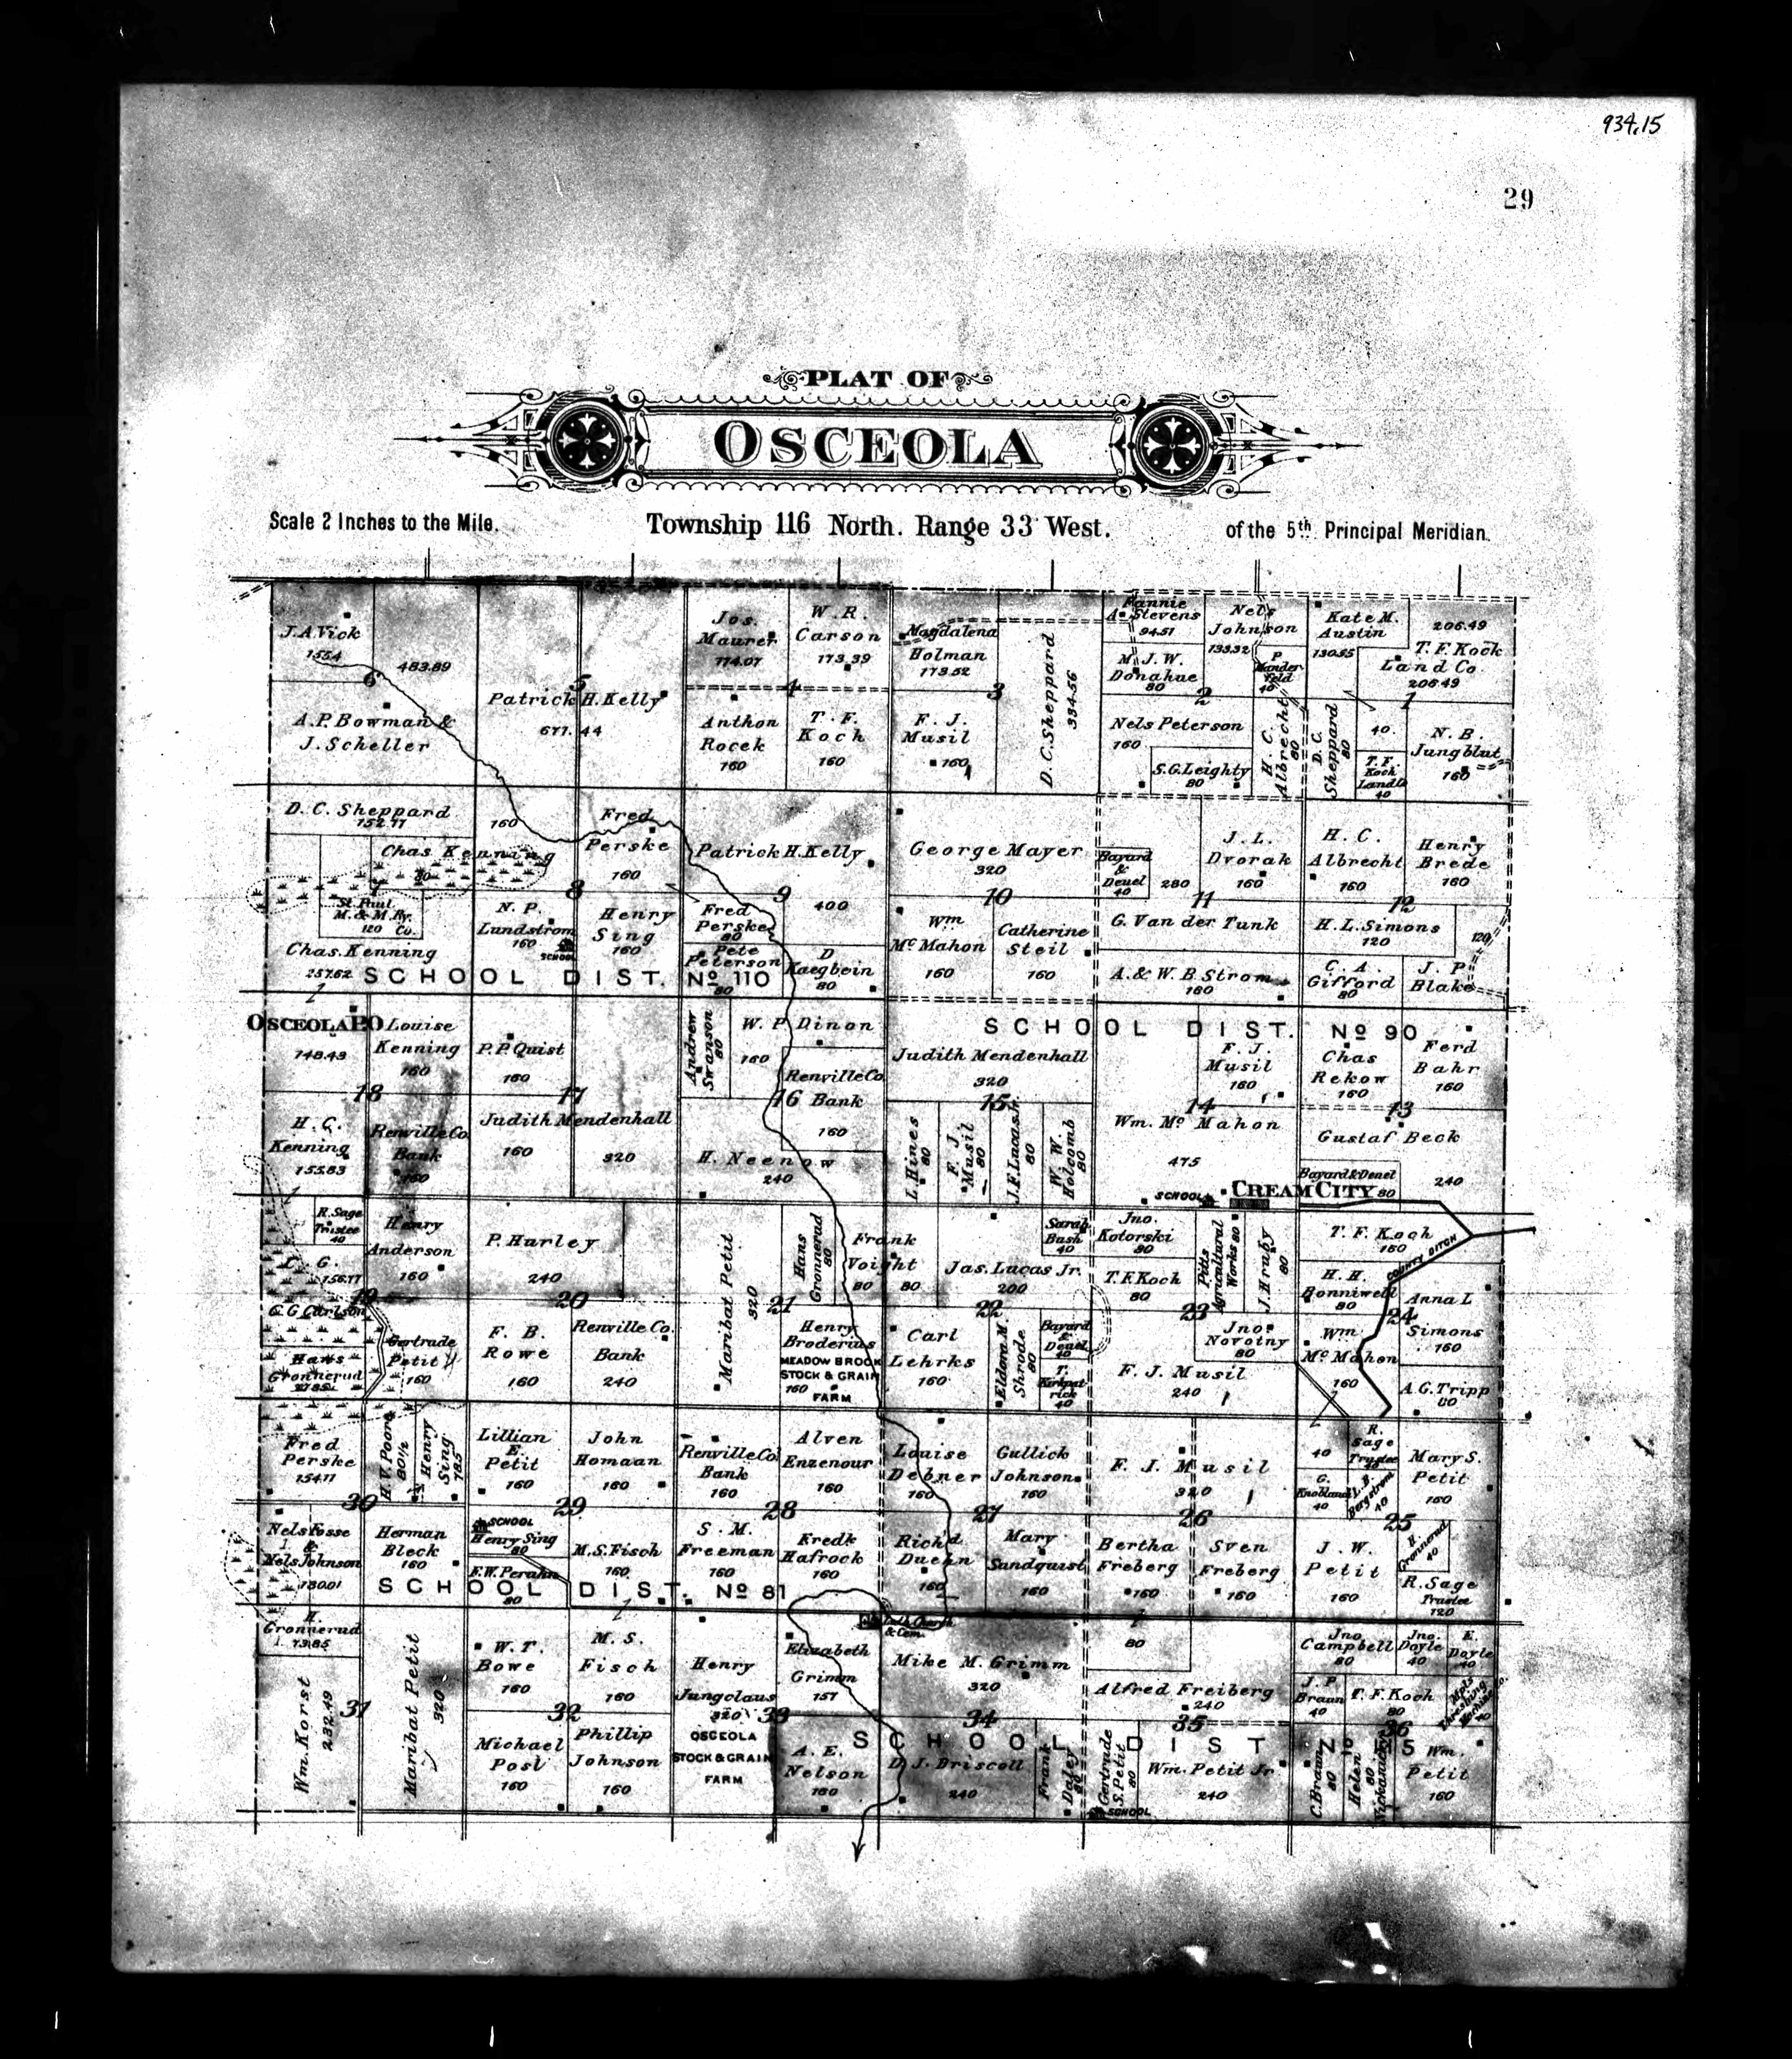 934.15
29
PLAT OF
OSCEOLA
Scale 2 Inches to the Mile.
Township 116 North. Range 33 West.
of the 5th Principal Meridian.
J.A. Vick
155.4
483.89
6
A.P. Bowman &
J. Scheller
5
Patrick H. Kelly
677.44
Jos.
Maurer
174.07
W. R.
Carson
173.39
4
Anthon
Rocek
160
T. F.
Koch
160
Magdalena
Holman
173.52
3
F. J.
Musil
160
D. C. Sheppard
334.56
Fannie
A. Stevens
94.51
Nels
Johnson
133.32
M. J. W.
Donahue
80
P
Mander
feld
40
2
Nels Peterson
160
S.G. Leighty
80
H. C.
Albrecht
80
Kate M.
Austin
130.55
206.49
T. F. Koch
Land Co.
206.49
1
D. C.
Sheppard
80
40
T. F.
Koch
Land Co
40
N. B.
Jungblut
160
D. C. Sheppard
152.77
160
Chas Kenning
80
7
St. Paul
M. & M. Ry.
120 Co.
Chas. Kenning
257.62
Fred
Perske
160
8
N. P.
Lundstrom
160
SCHOOL
Henry
Sing
160
Patrick H. Kelly
9
400
Fred
Perske
80
Pete
Peterson
80
D
Kaegbein
80
SCHOOL DIST. No 110
George Mayer
320
10
Wm
Mc Mahon
160
Catherine
Steil
160
Bayard
&
Deuel
40
280
J. L.
Dvorak
160
11
G. Van der Tunk
A. & W. B. Strom
160
H. C.
Albrecht
160
Henry
Brede
160
12
H. L. Simons
120
120
C. A.
Gifford
80
J. P.
Blake
OSCEOLA P.O
148.43
Louise
Kenning
160
18
H. C.
Kenning
155.83
Renville Co.
Bank
160
P. P. Quist
160
17
Judith Mendenhall
160
320
Andrew
Swanson
80
W. P. Dinon
160
Renville Co
16 Bank
160
H. Neenow
240
SCHOOL DIST. No 90
Judith Mendenhall
320
15
L. Hines
80
F. J.
Musil
80
J. F. Lucas Jr.
80
W. W.
Holcomb
80
F. J.
Musil
160
14
Wm. Mc Mahon
475
SCHOOL
Chas
Rekow
160
Ferd
Bahr
160
13
Gustaf Beck
240
Bayard & Deuel
80
CREAM CITY
R. Sage
Trustee
40
156.77
Henry
Anderson
160
19
C. G. Carlson
Hans
Gronnerud
Gertrude
Petit
160
P. Harley
240
20
F. B.
Rowe
160
Renville Co.
Bank
240
Maribat Petit
320
Hans
Gronnerud
80
21
Henry
Broderius
MEADOW BROOK
STOCK & GRAIN
160
FARM
Frank
Voight
80
80
Jas. Lucas Jr.
200
Sarah
Bush
40
22
Carl
Lehrks
160
Eldora M.
Shrode
80
Bayard
&
Deuel
40
T.
Kirkpat
rick
40
Jno.
Kotorski
80
T. F. Koch
80
Pitts
Agricultural
Works 80
J. Hruby
80
23
Jno.
Novotny
80
F. J. Musil
240
T. F. Koch
160
COUNTY DITCH
H. H.
Bonniwell
80
24
Anna L
Simons
160
Wm.
Mc Mahon
160
A. G. Tripp
80
Fred
Perske
154.11
H. V. Poore
80 1/2
Henry
Sing
78.5
30
Nels Fosse
&
Nels Johnson
180.01
Herman
Bleck
160
Lillian
E.
Petit
160
John
Homaan
160
29
SCHOOL
Henry Sing
80
F. W. Perahn
80
M. S. Fisch
160
Renville Co
Bank
160
Alven
Enzenour
160
28
S. M.
Freeman
160
Fredk
Hafrock
160
SCHOOL DIST. No 81
Louise
Debner
160
Gullick
Johnson
160
27
Rich'd
Duehn
160
Mary
Sandquist
160
F. J. Musil
320
26
Bertha
Freberg
160
Sven
Freberg
160
40
R.
Sage
Trustee
40
G.
Knobland
40
L. B.
Bergstrom
40
Mary S.
Petit
160
25
J. W.
Petit
160
H.
Gronnerud
40
R. Sage
Trustee
120
H.
Gronnerud
73.85
Wm. Korst
232.49
31
Maribat Petit
320
W. T.
Bowe
160
M. S.
Fisch
160
32
Michael
Post
160
Phillip
Johnson
160
Henry
Jungclaus
320
33
OSCEOLA
STOCK & GRAIN
FARM
Elizabeth
Grimm
157
A. E.
Nelson
160
Luth. Church
& Cem.
Mike M. Grimm
320
34
D. J. Driscoll
240
Frank
Daley
80
80
Alfred Freiberg
240
35
Gertrude
S. Petit
80
SCHOOL
Wm. Petit Jr.
240
Jno.
Campbell
80
Jno.
Doyle
40
E.
Doyle
40
J. P.
Braun
40
T. F. Koch
80
Mpls
Threshing
Machine Co.
40
36
C. Braun
80
Helen
80
Wm.
Petit
160
SCHOOL DIST No 115